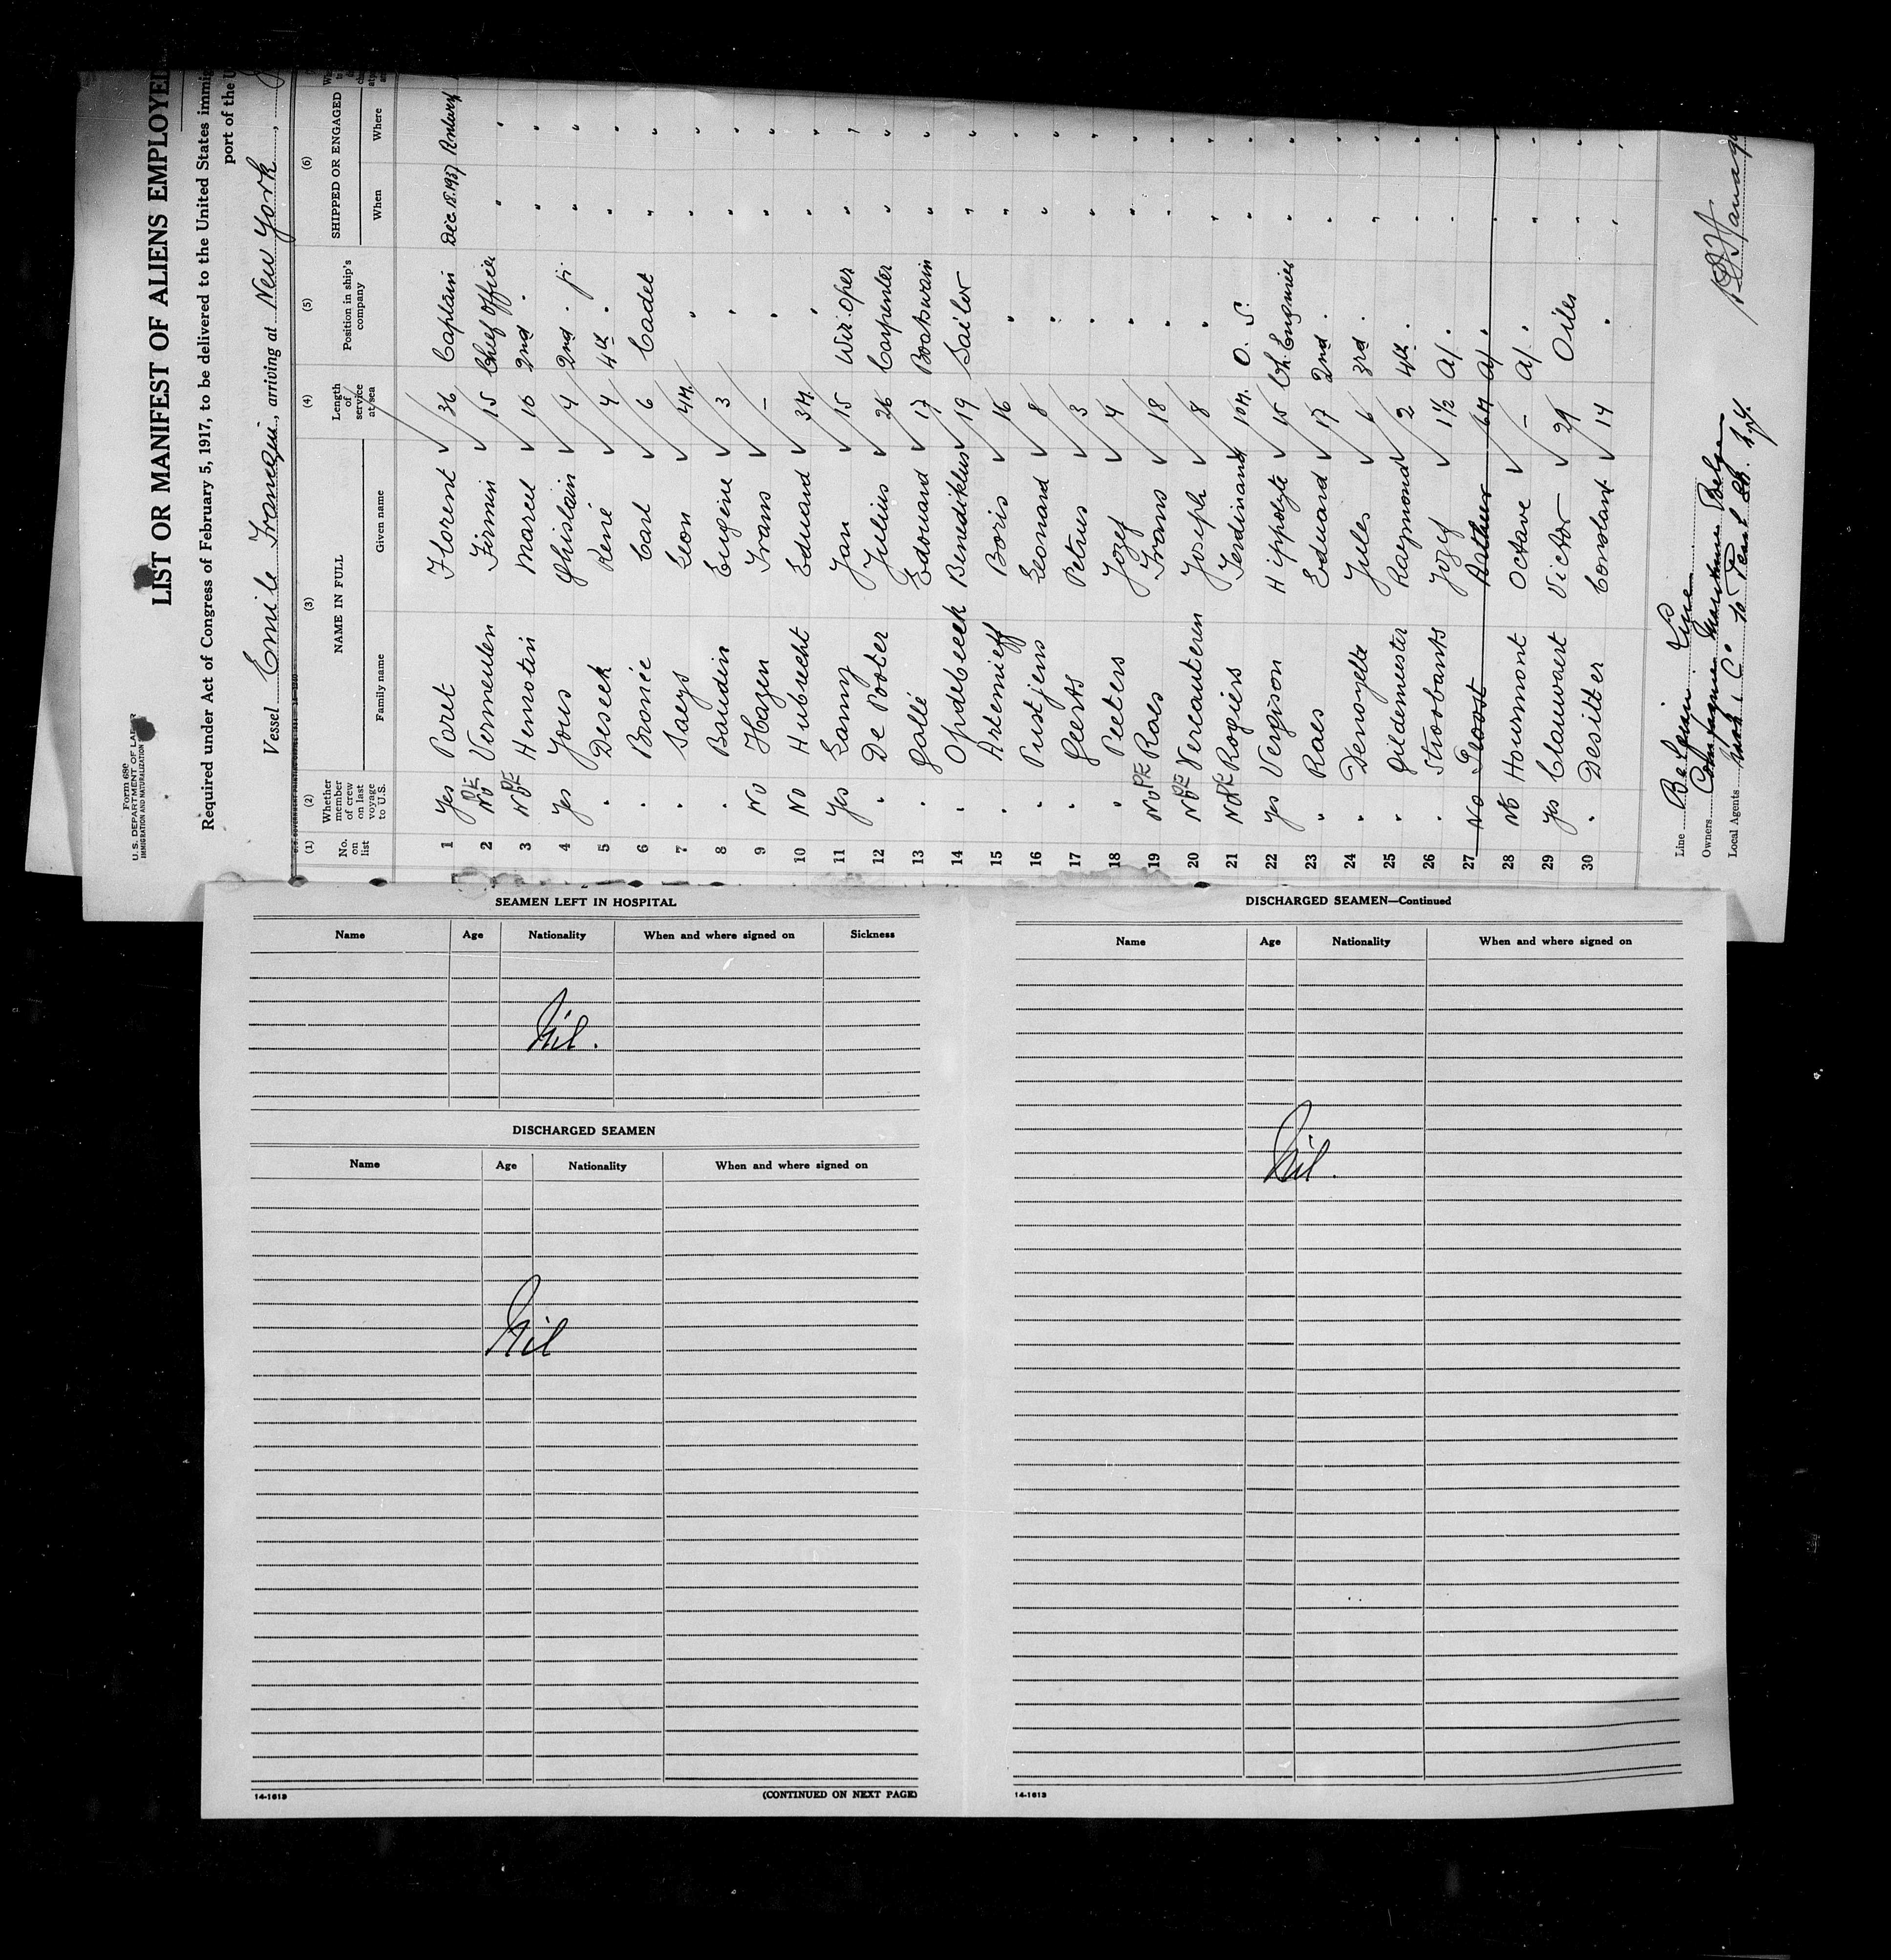 Form 680
U. S. DEPARTMENT OF LABOR
IMMIGRATION AND NATURALIZATION
LIST OR MANIFEST OF ALIENS EMPLOYED
Required under Act of Congress of February 5, 1917, to be delivered to the United States immig
port of the U
Vessel Emile Francqui, arriving at New York,
(1) (2) (3) (4) (5) (6)
No. on list Whether member of crew on last voyage to U.S. NAME IN FULL Length of service at sea Position in ship's company SHIPPED OR ENGAGED
Family name Given name When Where
1 Yes Poret Florent 36 Captain Dec. 18. 1937
2 No PE Vermeulen Firmin 15 Chief Officer " "
3 No PE Hemstin Marcel 10 2nd " " "
4 Yes Yous Ghislain 4 2nd " jr. " "
5 " Deseck René 4 4th " " "
6 " Bronée Carl 6 Cadet " "
7 " Saeys Leon 4M. " " "
8 " Baudin Eugène 3 " " "
9 No Hazen Frans - " " "
10 No Hubrecht Eduard 3M. " " "
11 Yes Lanny Jan 15 Wir. Oper " "
12 " De Pooter Julius 26 Carpenter " "
13 " Gallé Edouard 17 Boatswain " "
14 " Opdebeeck Benediktus 19 Sailor " "
15 " Artemieff Boris 16 " " "
16 " Pustjens Leonard 8 " " "
17 " Geerts Petrus 3 " " "
18 " Peeters Jozef 4 " " "
19 No PE Raes Frans 18 " " "
20 No PE Vercauteren Joseph 8 " " "
21 No PE Rogiers Ferdinand 10M. O. S. " "
22 Yes Vergison Hippolyte 15 Ch. Engineer " "
23 " Raes Eduard 17 2nd " " "
24 " Denoyette Jules 6 3rd " " "
25 " Gildemester Raymond 2 4th " " "
26 " Stroobants Jozef 1½ a/. " "
27 No Proost Arthur 6M a/. " "
28 No Hourmont Octave - a/. " "
29 Yes Clauwaert Victor 29 Oiler " "
30 " Desilter Constant 14 " " "
Line Belgian Line
Owners Compagnie Maritime Belge
Local Agents
SEAMEN LEFT IN HOSPITAL
Name Age Nationality When and where signed on Sickness
Nil.
DISCHARGED SEAMEN
Name Age Nationality When and where signed on
Nil
14-1613 (CONTINUED ON NEXT PAGE)
DISCHARGED SEAMEN—Continued
Name Age Nationality When and where signed on
Nil.
14-1613